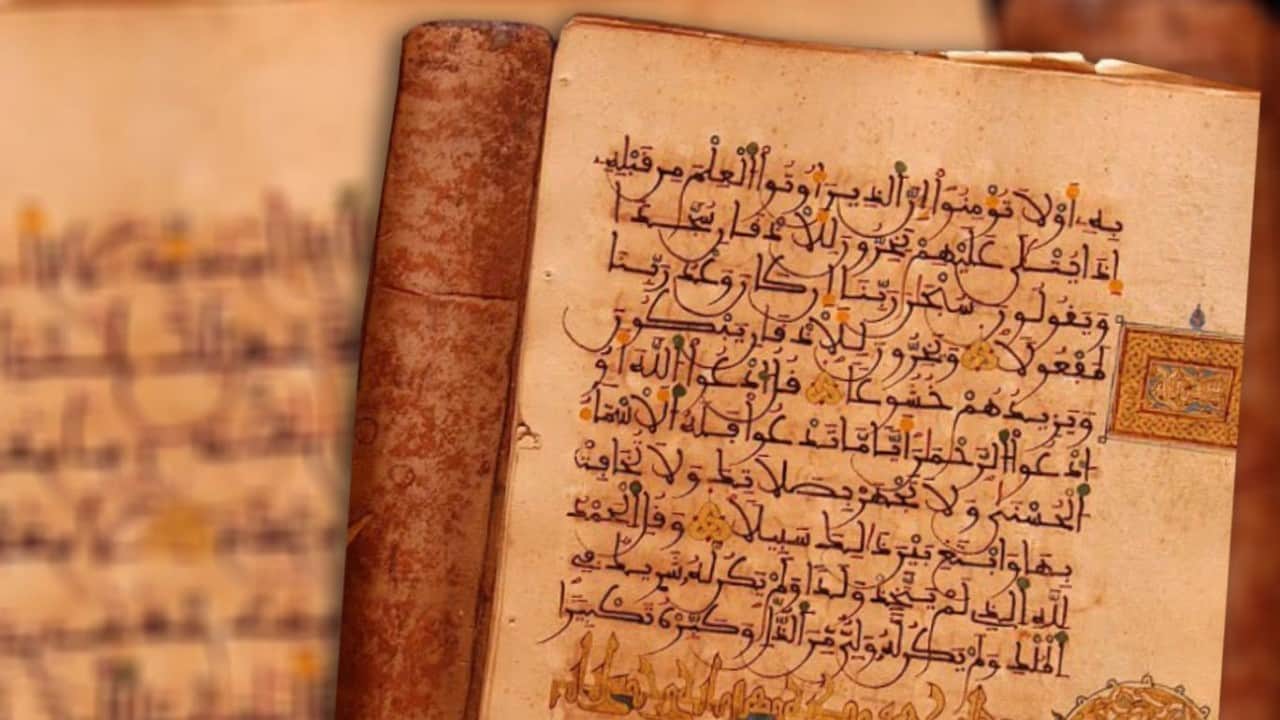 بِهِۦٓ أَوْ لَا تُؤْمِنُوٓا۟ إِنَّ ٱلَّذِينَ أُوتُوا۟ ٱلْعِلْمَ مِن قَبْلِهِۦٓ
إِذَا يُتْلَىٰ عَلَيْهِمْ يَخِرُّونَ لِلْأَذْقَانِ سُجَّدًا
وَيَقُولُونَ سُبْحَٰنَ رَبِّنَآ إِن كَانَ وَعْدُ رَبِّنَا
لَمَفْعُولًا وَيَخِرُّونَ لِلْأَذْقَانِ يَبْكُونَ
وَيَزِيدُهُمْ خُشُوعًا قُلِ ٱدْعُوا۟ ٱللَّهَ أَوِ
ٱدْعُوا۟ ٱلرَّحْمَٰنَ أَيًّا مَّا تَدْعُوا۟ فَلَهُ ٱلْأَسْمَآءُ
ٱلْحُسْنَىٰ وَلَا تَجْهَرْ بِصَلَاتِكَ وَلَا تُخَافِتْ
بِهَا وَٱبْتَغِ بَيْنَ ذَٰلِكَ سَبِيلًا وَقُلِ ٱلْحَمْدُ
لِلَّهِ ٱلَّذِى لَمْ يَتَّخِذْ وَلَدًا وَلَمْ يَكُن لَّهُۥ شَرِيكٌ فِى
ٱلْمُلْكِ وَلَمْ يَكُن لَّهُۥ وَلِىٌّ مِّنَ ٱلذُّلِّ وَكَبِّرْهُ تَكْبِيرًا